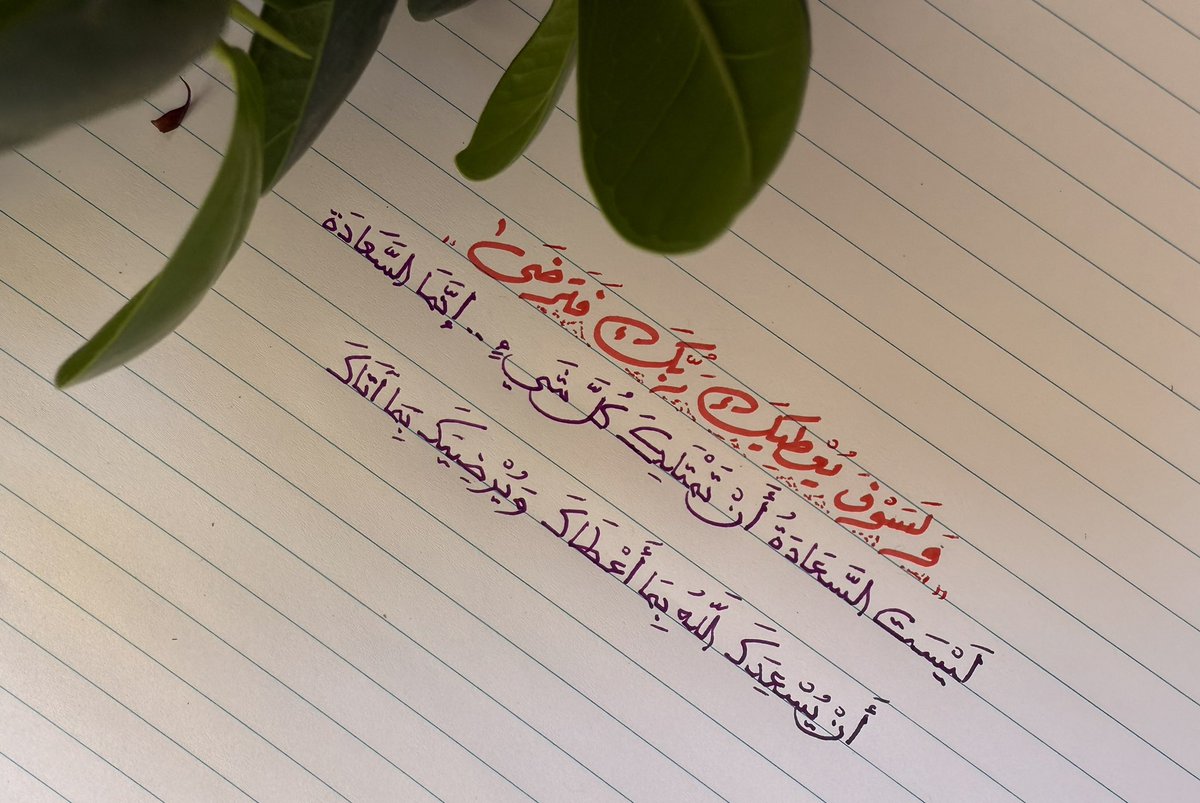 "وَلَسَوْفَ يُعْطِيكَ رَبُّكَ فَتَرْضَىٰ"
لَيْسَت السَّعَادَةُ أَنْ تَمْتَلِكَ كُلَّ شَيْءٍ .. إنَّمَا السَّعَادَة
أَنْ يُسْعِدَكَ اللَّهُ بِمَا أَعْطَاكَ وَيُرْضِيَكَ بِمَا أَتَاكَ